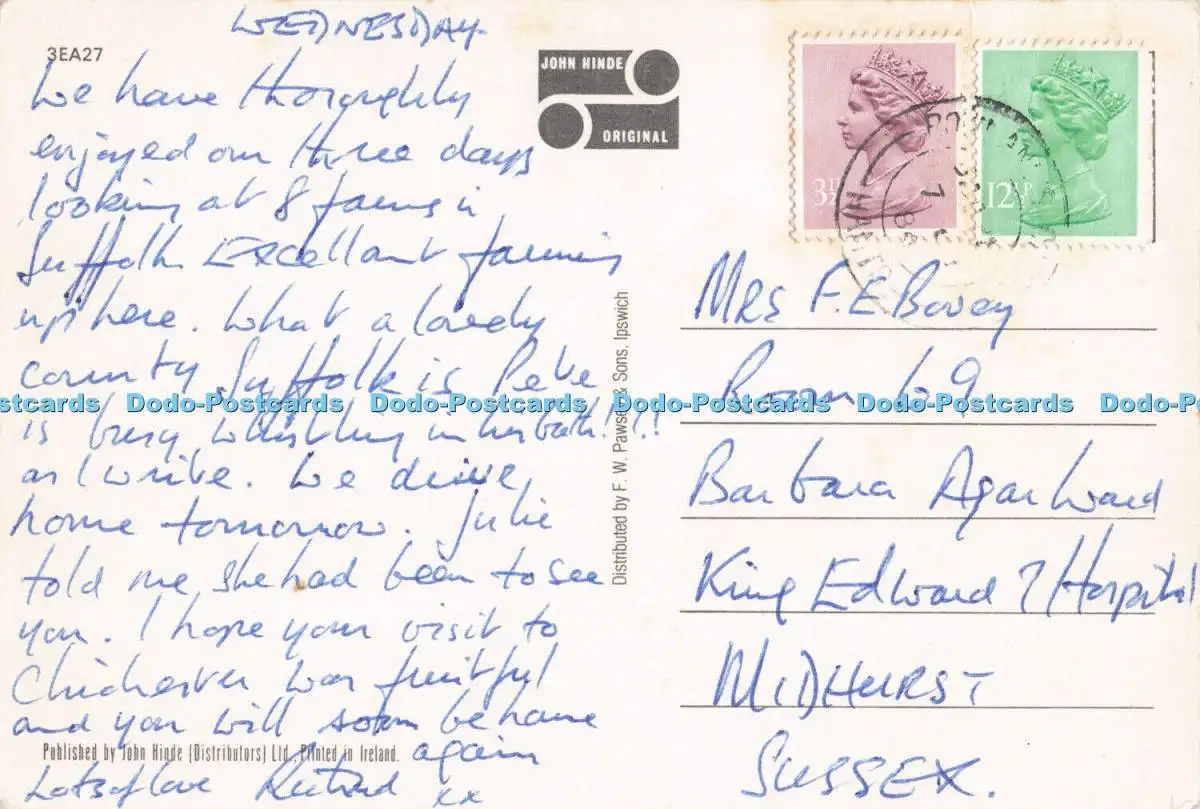 WEDNESDAY
3EA27
We have thoroughly
enjoyed our three days
looking at 8 farms in
Suffolk Excellant farming
up here. What a lovely
county Suffolk is Pete
is busy whistling in her bath!!!
as I write. We drive
home tomorrow. Julie
told me she had been to see
you. I hope your visit to
Chichester was fruitful
and you will soon be home
again
Lots of love Richard xx
Published by John Hinde (Distributors) Ltd., Printed in Ireland.
JOHN HINDE
ORIGINAL
Distributed by F. W. Pawsey & Sons, Ipswich
3½P
12½P
Mrs F. E Bovey
Room 69
Barbara Agar Ward
King Edward 7 Hospital
MIDHURST
SUSSEX.
Dodo-Postcards Dodo-Postcards Dodo-Postcards Dodo-Postcards Dodo-Postcards Dodo-Postcards